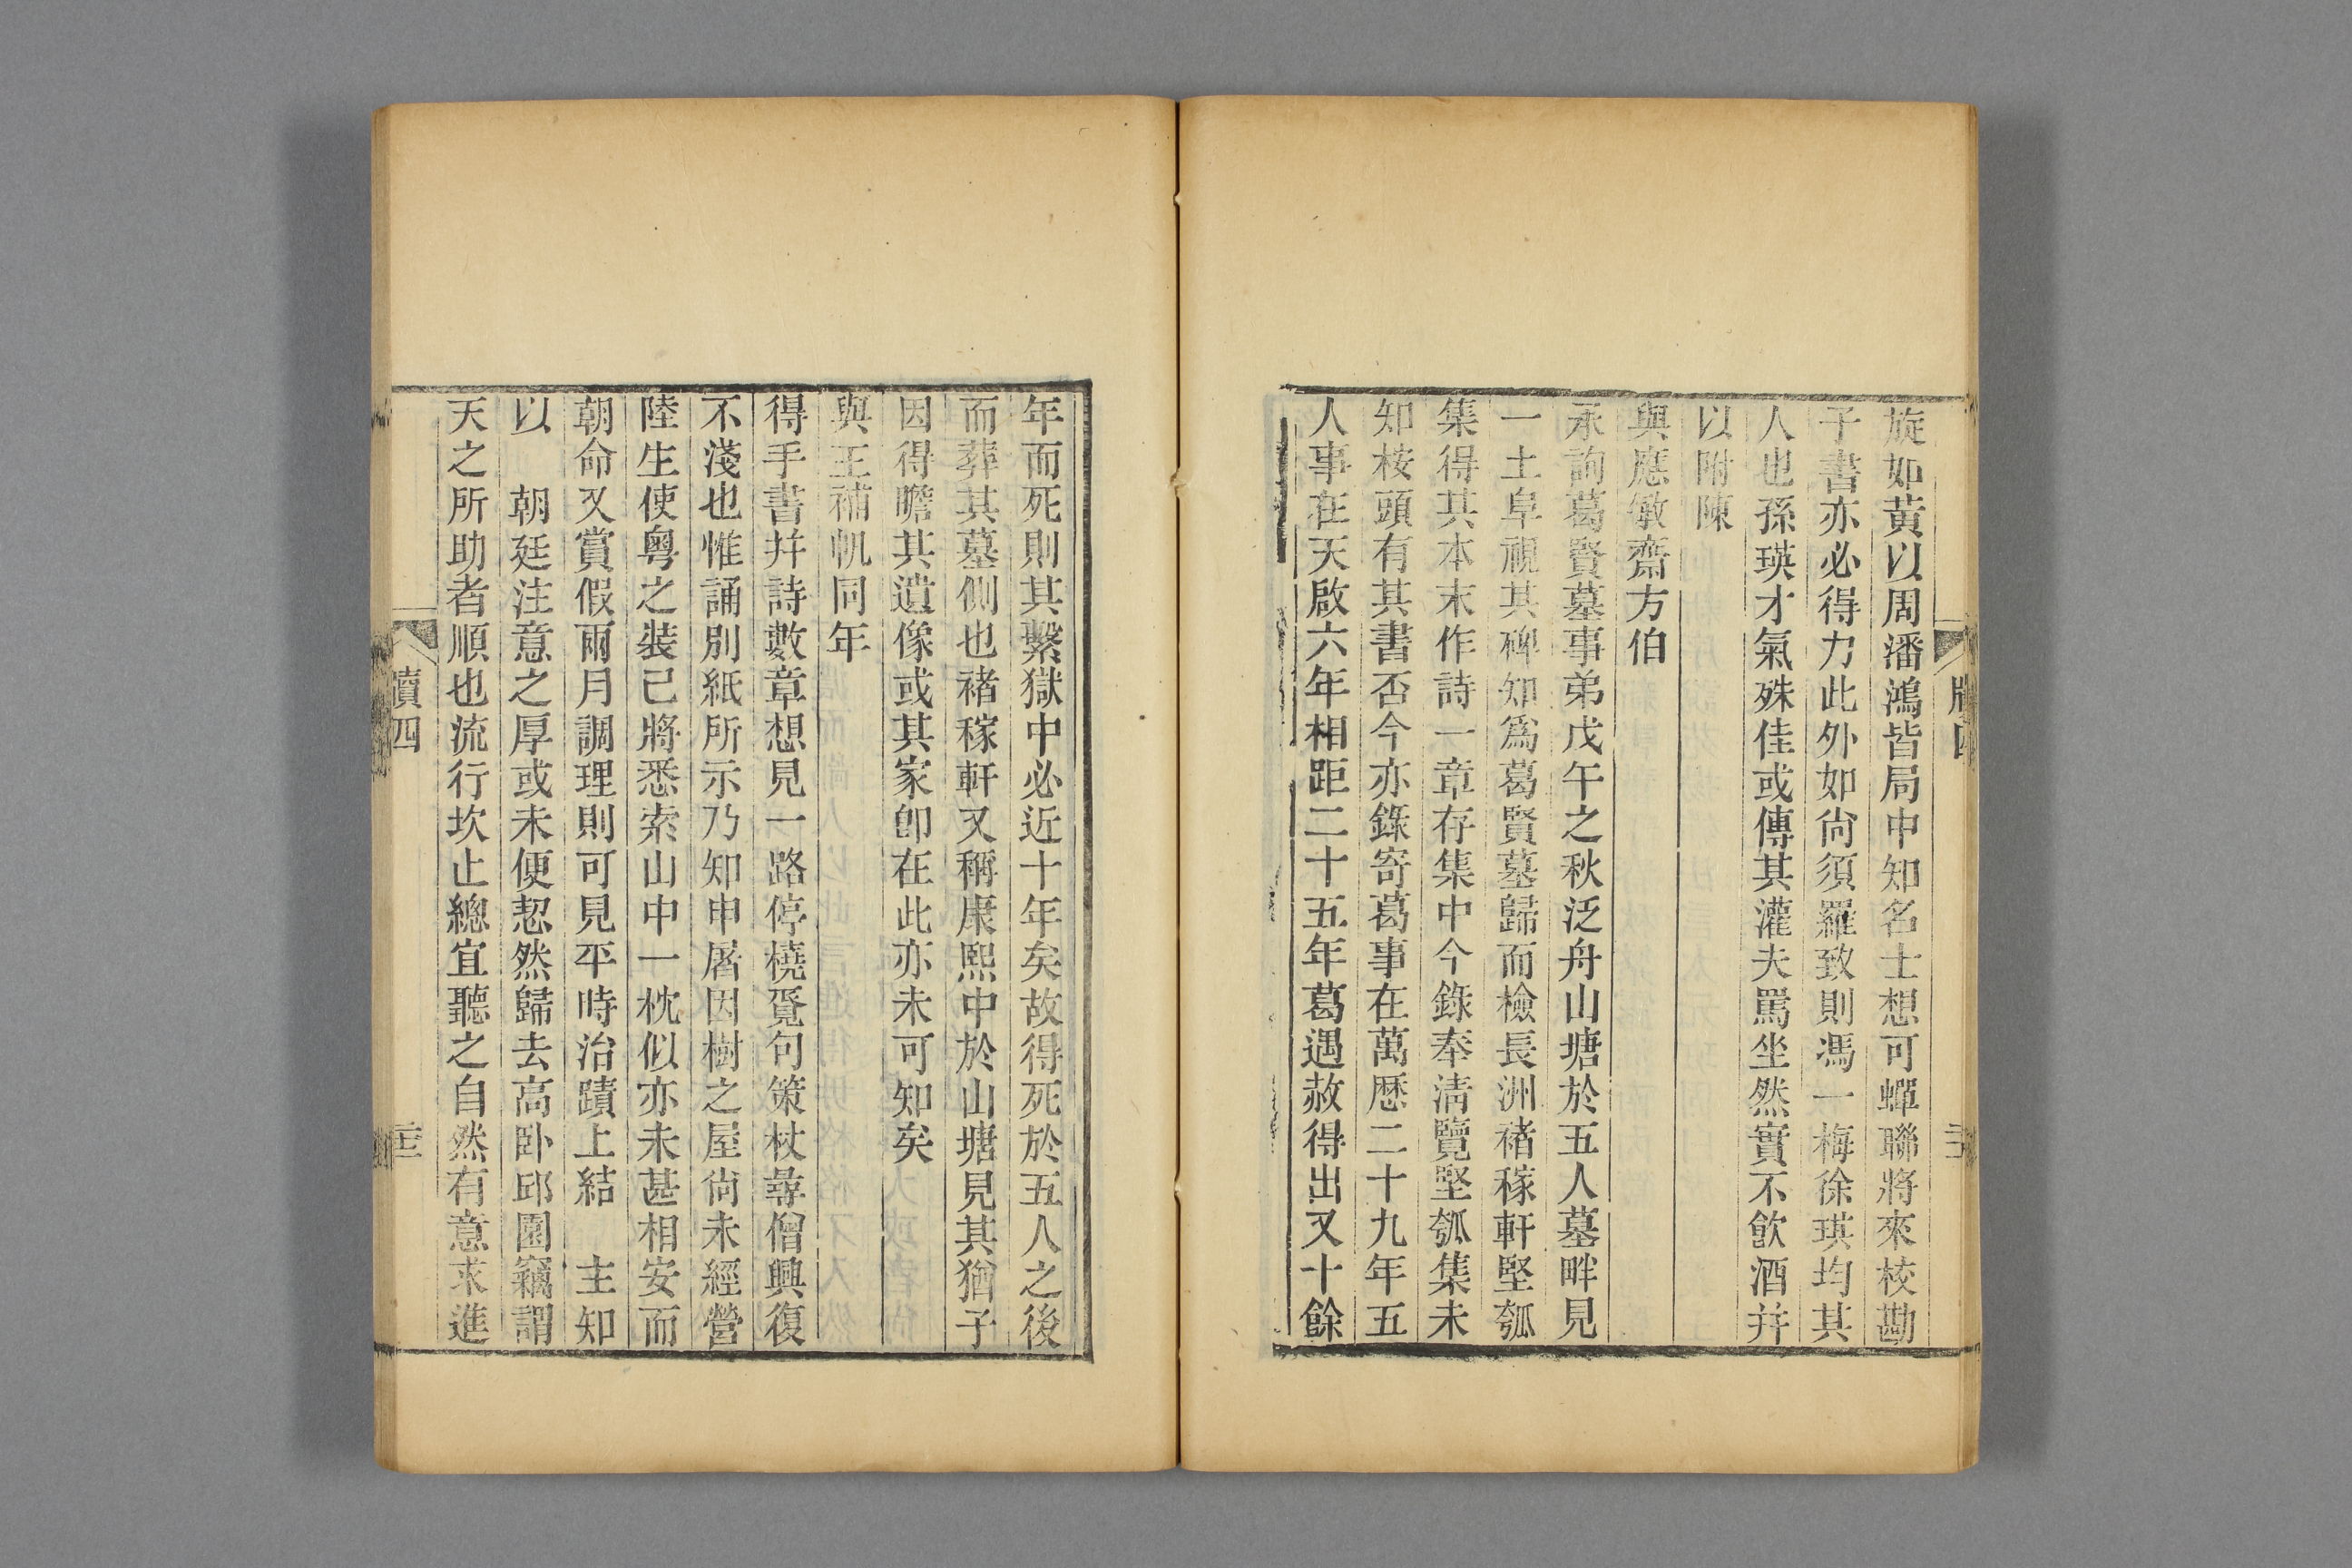 旋如黃以周潘鴻皆局中知名士想可蟬聯將來校勘
子書亦必得力此外如尙須羅致則馮一梅徐琪均其
人也孫瑛才氣殊佳或傳其灌夫罵坐然實不飮酒并
以附陳
與應敏齋方伯
承詢葛賢墓事弟戊午之秋泛舟山塘於五人墓畔見
一土阜視其碑知爲葛賢墓歸而檢長洲褚稼軒堅瓠
集得其本末作詩一章存集中今錄奉淸覽堅瓠集未
知桉頭有其書否今亦錄寄葛事在萬歷二十九年五
人事在天啟六年相距二十五年葛遇赦得出又十餘
年而死則其繫獄中必近十年矣故得死於五人之後
而葬其墓側也褚稼軒又稱康熙中於山塘見其猶子
因得瞻其遺像或其家卽在此亦未可知矣
與王補帆同年
得手書幷詩數章想見一路停橈覔句策杖尋僧興復
不淺也惟誦別紙所示乃知申屠因樹之屋尙未經營
陸生使粤之裝已將悉索山中一枕似亦未甚相安而
朝命又賞假兩月調理則可見平時治蹟上結　主知
以　朝廷注意之厚或未便恝然歸去高臥邱園竊謂
天之所助者順也流行坎止總宜聽之自然有意求進
牘四